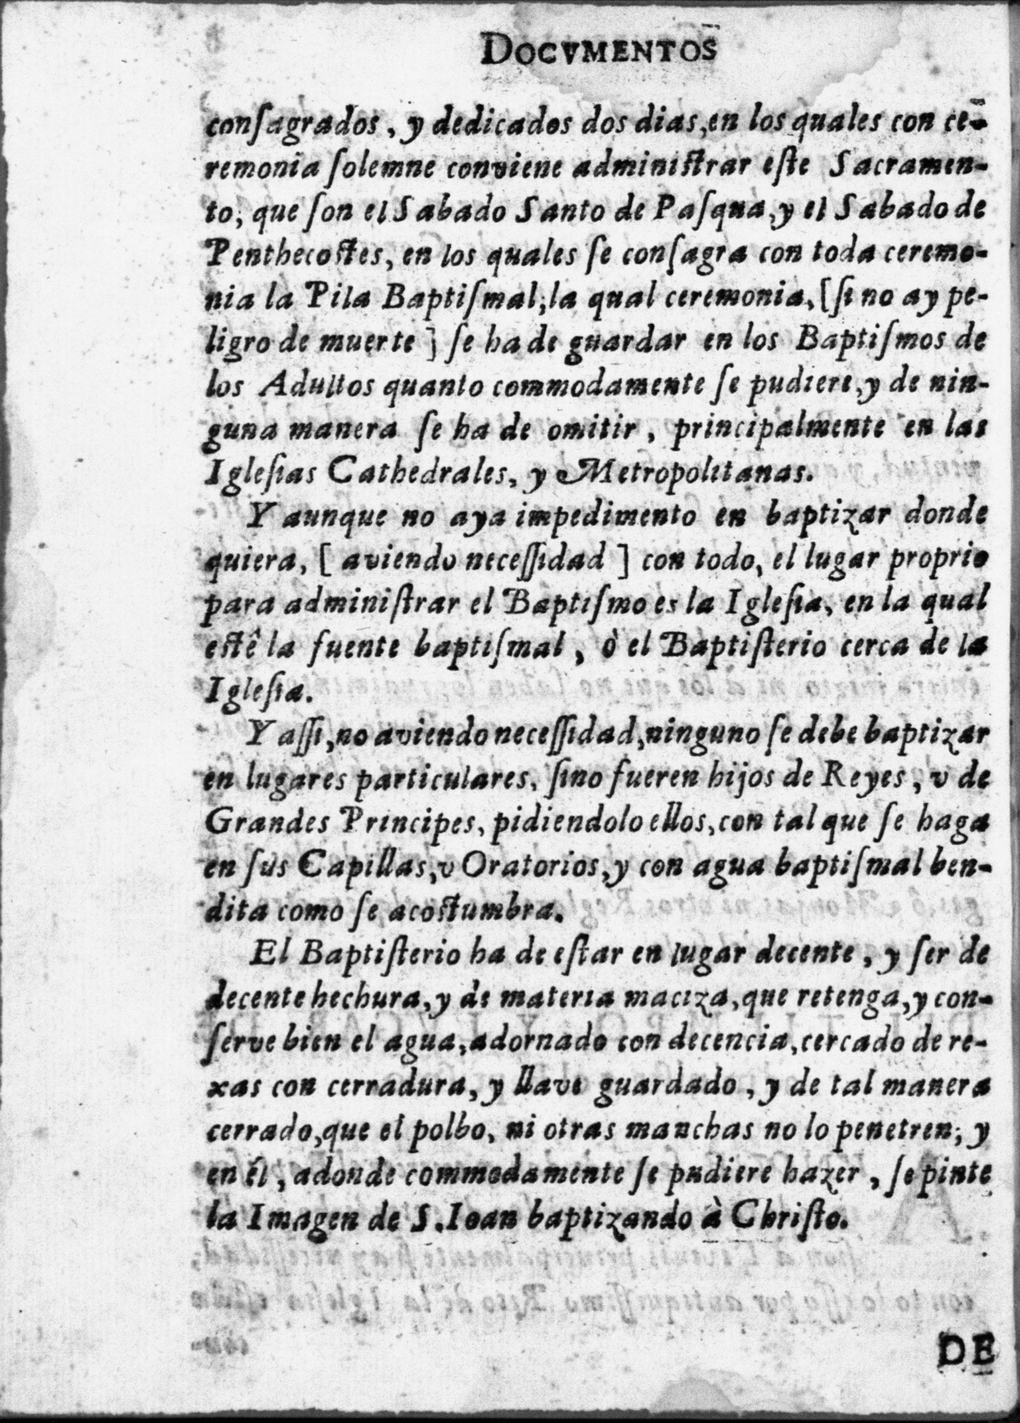 DOCVMENTOS
conſagrados, y dedicados dos dias, en los quales con ce-
remonia ſolemne conviene adminiſtrar eſte Sacramen-
to, que ſon el Sabado Santo de Paſqua, y el Sabado de
Penthecoſtes, en los quales ſe conſagra con toda ceremo-
nia la Pila Baptiſmal, la qual ceremonia, [ſi no ay pe-
ligro de muerte] ſe ha de guardar en los Baptiſmos de
los Adultos quanto commodamente ſe pudiere, y de nin-
guna manera ſe ha de omitir, principalmente en las
Igleſias Cathedrales, y Metropolitanas.
Y aunque no aya impedimento en baptizar donde
quiera, [aviendo neceſſidad] con todo, el lugar proprio
para adminiſtrar el Baptiſmo es la Igleſia, en la qual
eſtê la fuente baptiſmal, ò el Baptiſterio cerca de la
Igleſia.
Y aſſi, no aviendo neceſſidad, ninguno ſe debe baptizar
en lugares particulares, ſino fueren hijos de Reyes, v de
Grandes Principes, pidiendolo ellos, con tal que ſe haga
en ſus Capillas, v Oratorios, y con agua baptiſmal ben-
dita como ſe acoſtumbra.
El Baptiſterio ha de eſtar en lugar decente, y ſer de
decente hechura, y de materia maciza, que retenga, y con-
ſerve bien el agua, adornado con decencia, cercado de re-
xas con cerradura, y llave guardado, y de tal manera
cerrado, que el polbo, ni otras manchas no lo penetren; y
en él, adonde commodamente ſe pudiere hazer, ſe pinte
la Imagen de S. Ioan baptizando à Chriſto.
DE